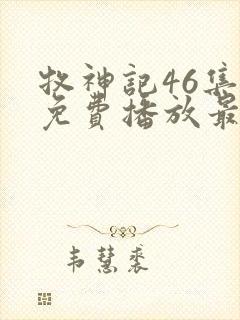 牧神記46集
免費播放最
韦慧裘